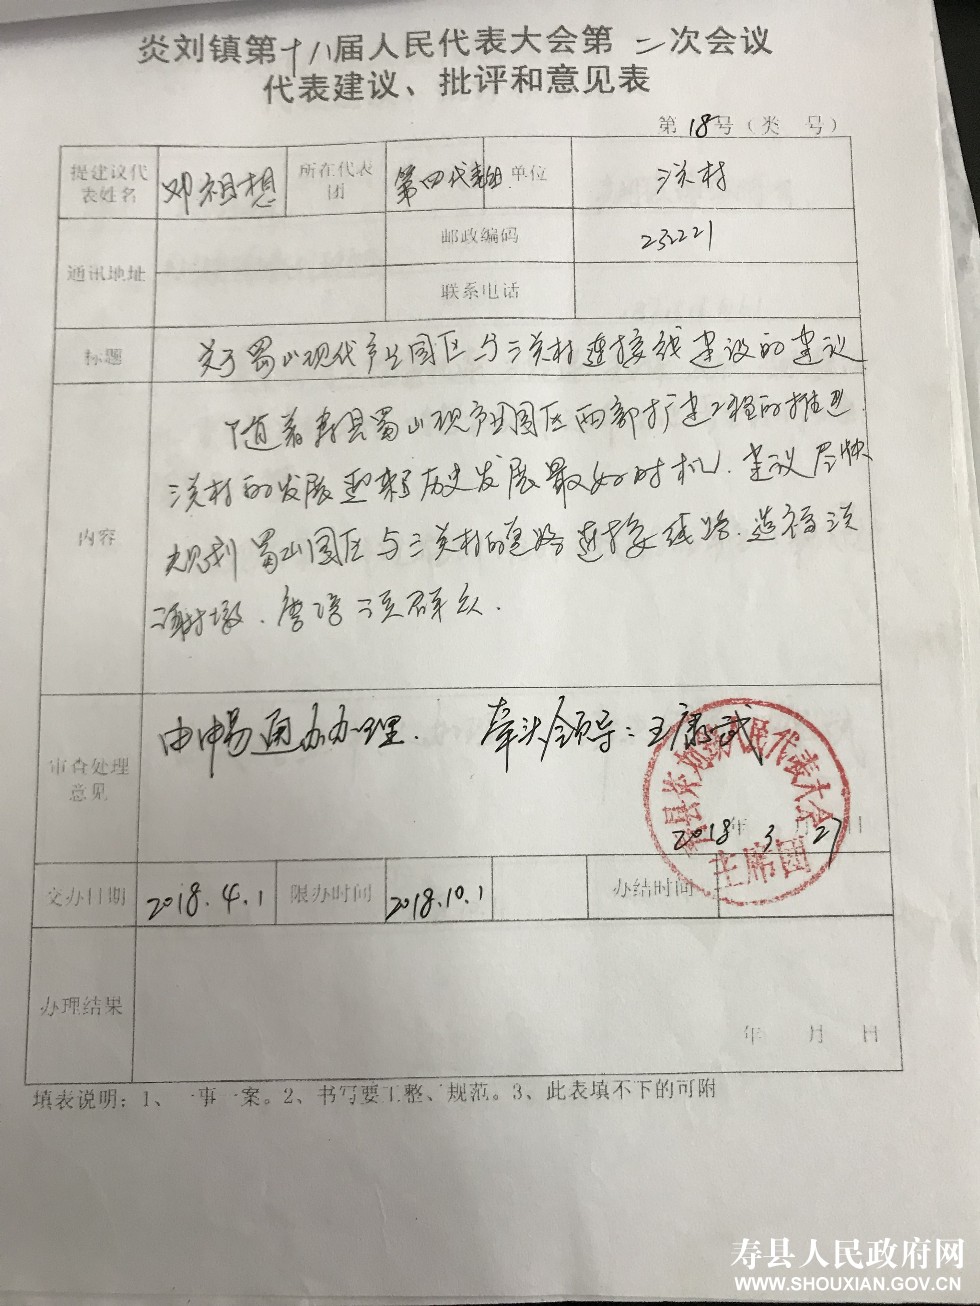 炎刘镇第十八届人民代表大会第二次会议
代表建议、批评和意见表
第18号（类 号）
提建议代表姓名 邓祖想 所在代表团 第四代表组 单位 三关村
通讯地址 邮政编码 232221
联系电话
标题 关于蜀山现代产业园区与三关村连接线建设的建议
内容 随着寿县蜀山现产园区西部扩建工程的推进
三关村的发展迎来了历史发展最好时机.建议尽快
规划蜀山园区与三关村的道路连接线路.造福三关
群众.
审查处理意见 由畅通办办理. 牵头领导:王康武
寿县炎刘镇人民代表大会
主席团
2018年3月27日
交办日期 2018.4.1 限办时间 2018.10.1 办结时间
办理结果
年 月 日
填表说明：1、一事一案。2、书写要工整、规范。3、此表填不下的可附
寿县人民政府网
WWW.SHOUXIAN.GOV.CN